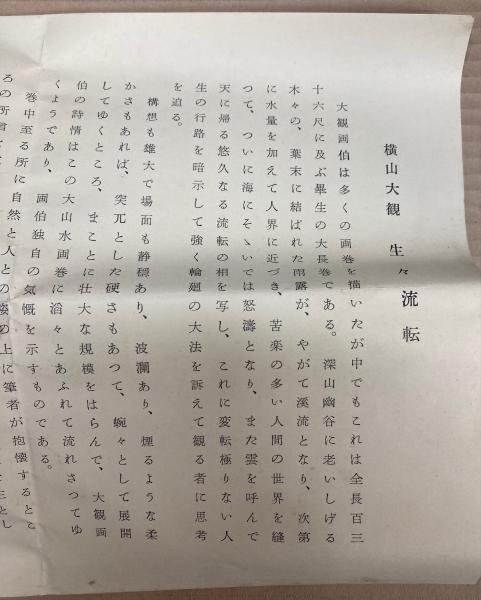 横山大観 生々流転
大観画伯は多くの画巻を描いたが中でもこれは全長百三
十六尺に及ぶ畢生の大長巻である。深山幽谷に老いしげる
木々の、葉末に結ばれた雨露が、やがて溪流となり、次第
に水量を加えて人界に近づき、苦楽の多い人間の世界を縫
つて、ついに海にそゝいでは怒濤となり、また雲を呼んで
天に帰る悠久なる流転の相を写し、これに変転極りない人
生の行路を暗示して強く輪廻の大法を訴えて観る者に思考
を迫る。
構想も雄大で場面も静穏あり、波瀾あり、煙るような柔
かさもあれば、突兀とした硬さもあつて、蜿々として展開
してゆくところ、まことに壮大な規模をはらんで、大観画
伯の詩情はこの大山水画巻に滔々とあふれて流れさつてゆ
くようであり、画伯独自の気慨を示すものである。
巻中至る所に自然と人との姿の上に筆者が抱懐するとこ
ろの所